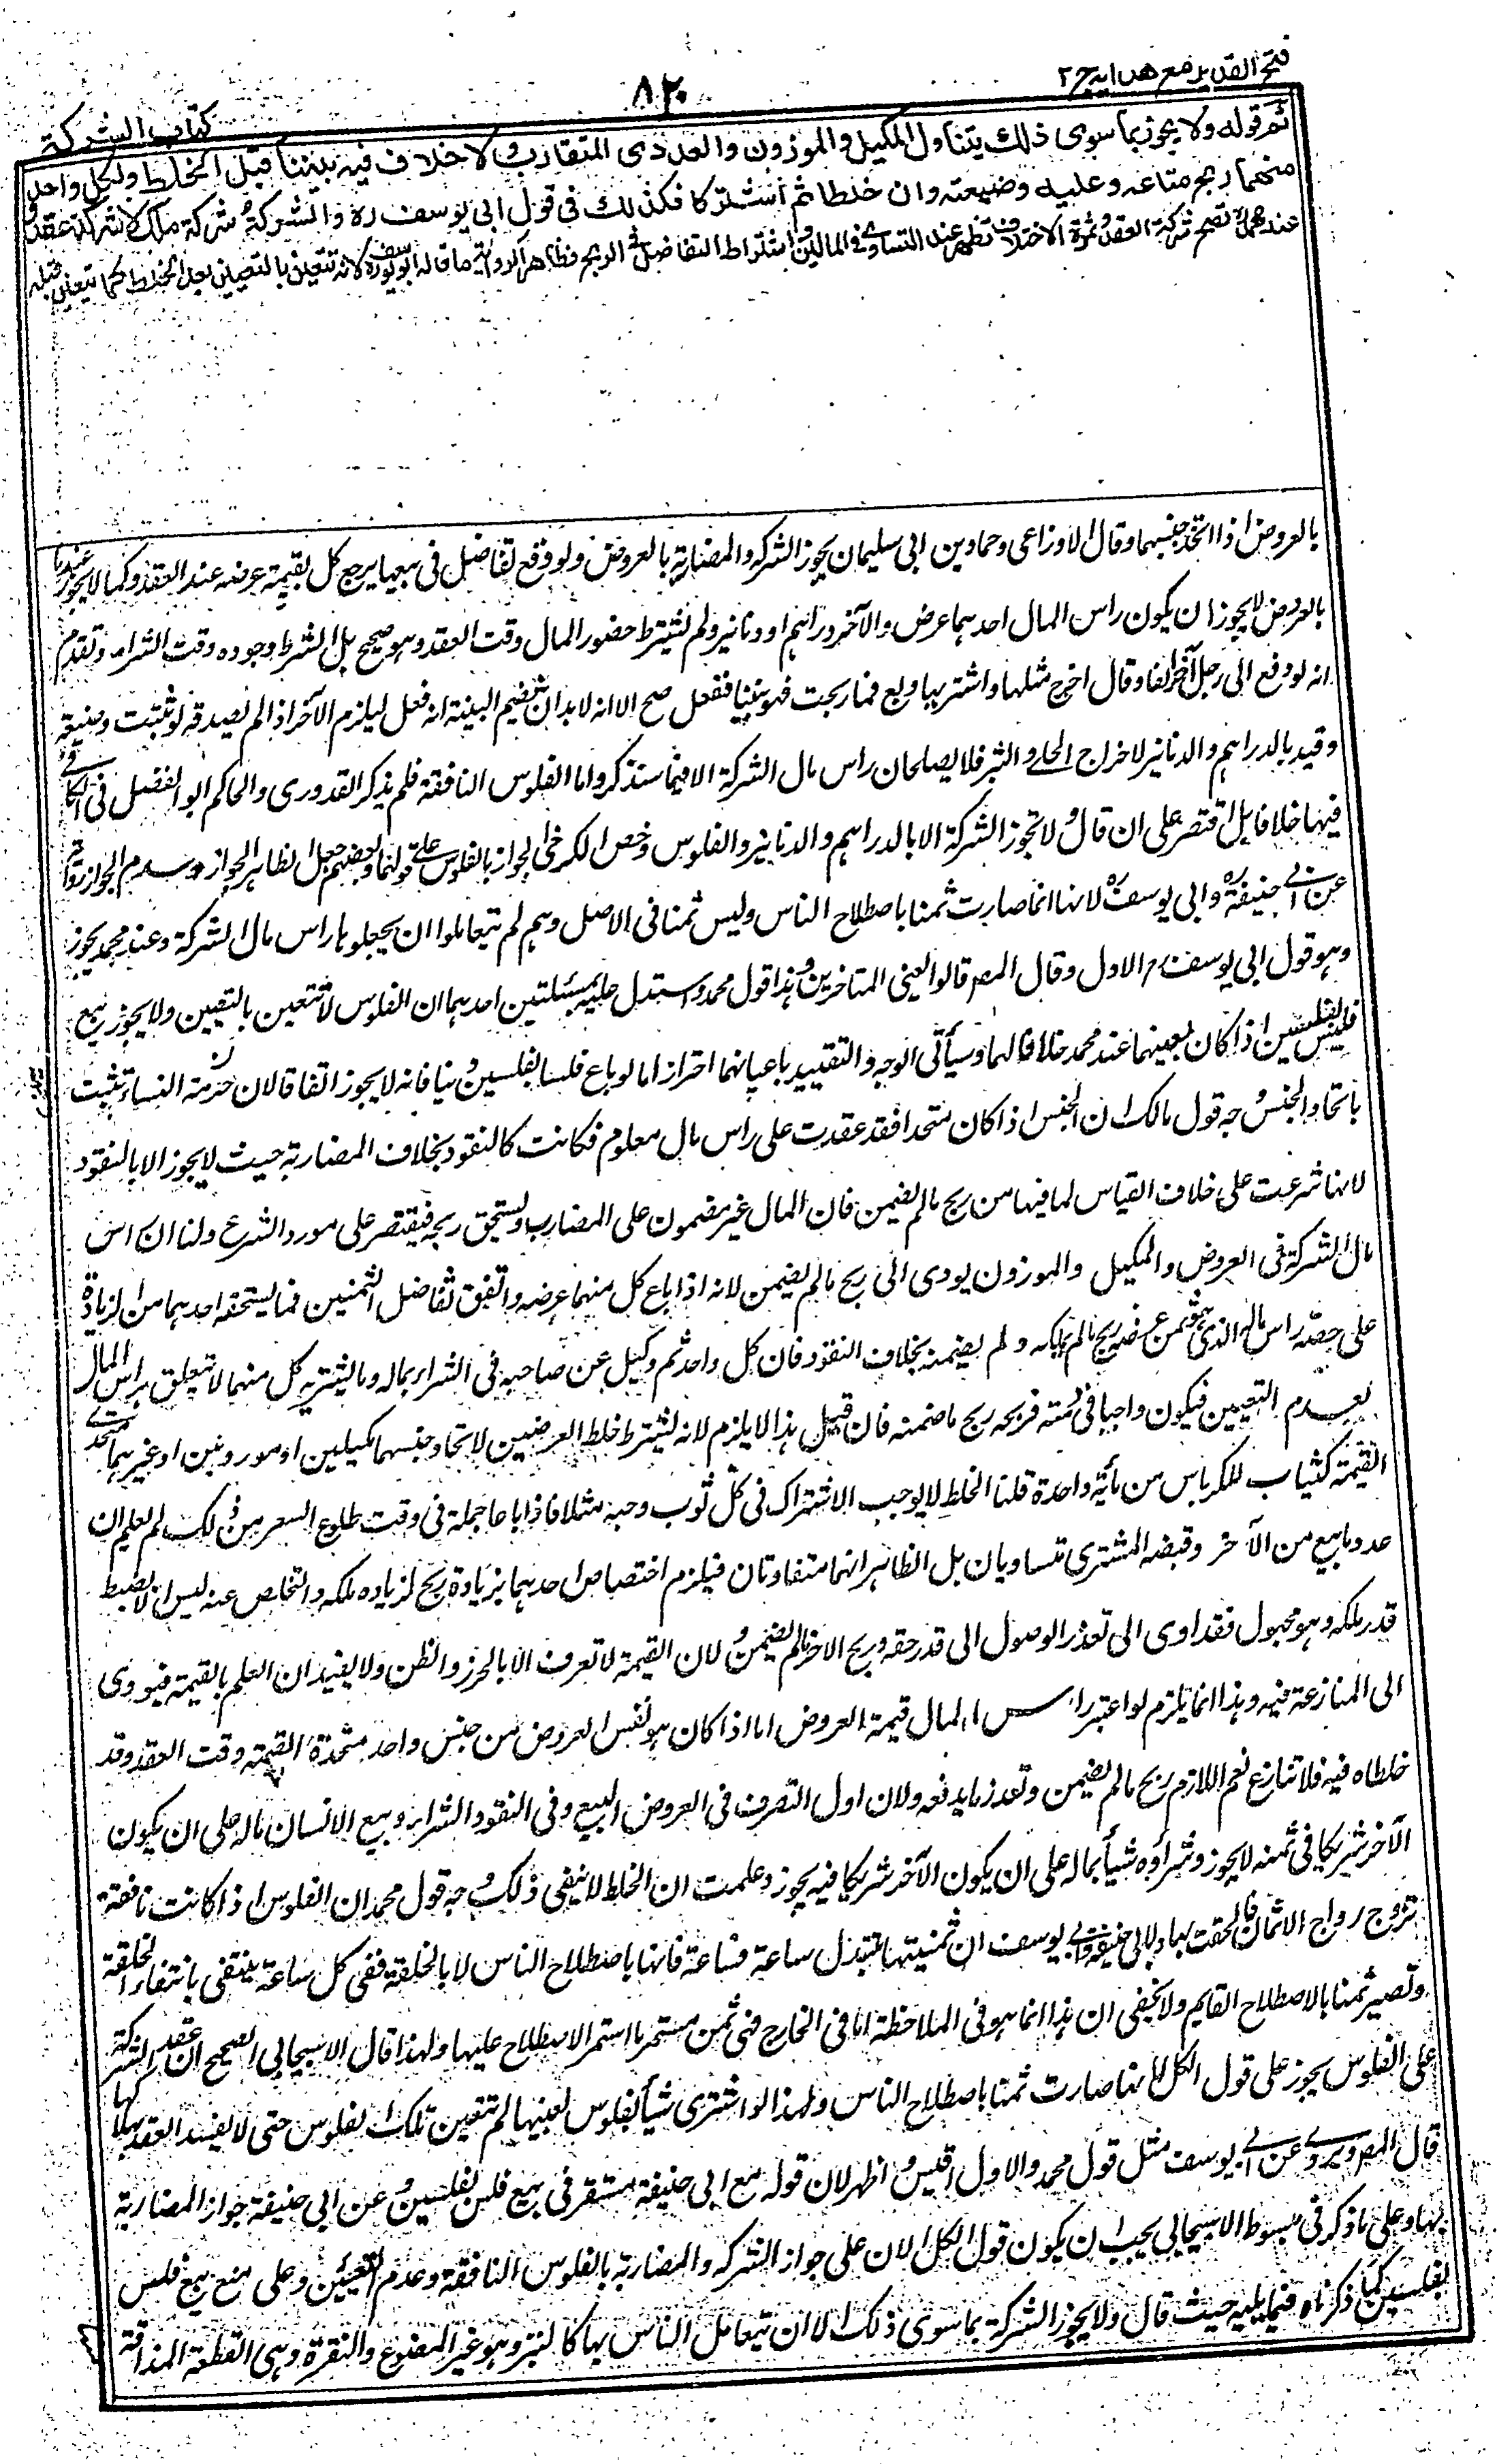 فتح القدير مع هدايه ج ٢
٨٢٠
كتاب الشركة
ثم قوله ولا يجوز بما سوى ذلك يتناول المكيل والموزون والعددى المتقارب ولا خلاف فيه بيننا قبل الخلط ولكل واحد
منهما ربح متاعه وعليه وضيعته وان خلطا ثم اشتركا فكذلك فى قول ابى يوسف ره والشركة شركة ملك لا شركة عقد و
عند محمد تصح شركة العقد وثمرة الاختلاف تظهر عند التساوى فى المالين واشتراط التفاضل فى الربح فظاهر الرواية ما قاله ابو يوسف ره لانه تتعين بالتعيين بعد الخلط كما تتعين قبله
بالعروض اذا اتحد جنسهما وقال الاوزاعى وحماد بن ابى سليمان يجوز الشركة والمضاربة بالعروض ولو وقع تفاضل فى بيعها يرجع كل بقيمة عرضه عند العقد وكما لا يجوز عندنا
بالعروض لا يجوز ان يكون راس المال احدهما عرض والآخر دراهم او دنانير ولم يشترط حضور المال وقت العقد وهو صحيح بل الشرط وجوده وقت الشراء وتقدم
انه لو دفع الى رجل آخر الفا وقال اخرج مثلها واشتر بها وبع فما ربحت فهو بيننا ففعل صح الا انه لا بد ان يقيم البينة انه فعل ليلزم الآخر اذا لم يصدقه لو ثبتت وضيعة
وقيد بالدراهم والدنانير لاخراج الحلى والتبر فلا يصلحان راس مال الشركة الا فيما سنذكر واما الفلوس النافقة فلم يذكر القدورى والحاكم ابو الفضل فى الكافى
فيها خلافا بل اقتصر على ان قال لا تجوز الشركة الا بالدراهم والدنانير والفلوس وخص الكرخى الجواز بالفلوس على قولهما وبعضهم جعل الظاهر الجواز وعدم الجواز رواية
عن ابى حنيفة ره وابى يوسف ره لانها انما صارت ثمنا باصطلاح الناس وليس ثمنا فى الاصل وهم لم يتعاملوا ان يجعلوها راس مال الشركة وعند محمد يجوز
وهو قول ابى يوسف ر الاول وقال المصر قالوا يعنى المتاخرين وهذا قول محمد واستدل عليه بمسئلتين احدهما ان الفلوس لا تتعين بالتعيين ولا يجوز بيع
فلسين بفلس اذا كان بعينهما عند محمد خلافا لهما وسيأتى الوجه والتقييد باعيانهما احتراز اما لو باع فلسا بفلسين دينا فانه لا يجوز اتفاقا لان حرمة النساء تثبت
باتحاد الجنس وجه قول مالك ان الجنس اذا كان متحدا فقد عقدت على راس مال معلوم فكانت كالنقود بخلاف المضاربة حيث لا يجوز الا بالنقود
لانها شرعت على خلاف القياس لما فيها من ربح مالم يضمن فان المال غير مضمون على المضارب ويستحق ربحه فيقتصر على مورد الشرع ولنا ان راس
مال الشركة فى العروض والمكيل والموزون يودى الى ربح مالم يضمن لانه اذا باع كل منهما عرضه واتفق تفاضل الثمنين فما يستحقه احدهما من الزيادة
على حصة راس ماله الذى هو ثمن عرضه ربح مالم يملكه ولم يضمنه بخلاف النقود فان كل واحد ثم وكيل عن صاحبه فى الشراء بماله وما يشتريه كل منهما لا يتعلق براس المال
لعدم التعيين فيكون واجبا فى ذمته فربحه ربح ما ضمنه فان قيل هذا لا يلزم لانه يشترط خلط العرضين لاتحاد جنسهما مكيلين او موزونين او غيرهما متحدى
القيمة كثياب الكرباس من مأية واحدة قلنا الخلط لا يوجب الاشتراك فى كل ثوب وحبة مثلا فاذا باعا جملة فى وقت طلوع السعر من ذلك لم يعلم ان
عدد ما بيع من الآخر وقبضه المشترى متساويان بل الظاهر انهما متفاوتان فيلزم اختصاص احدهما بزيادة ربح لزيادة ملكه والتخلص عنه ليس الا بضبط
قدر ملكه وهو مجهول فقد ادى الى تعذر الوصول الى قدر حقه وربح الاخر مالم يضمن ولان القيمة لا تعرف الا بالحرز والظن ولا يفيدان العلم بالقيمة فيودى
الى المنازعة فيه وهذا انما يلزم لو اعتبر راس المال قيمة العروض اما اذا كان هو نفس العروض من جنس واحد متحدة القيمة وقت العقد وقد
خلطاه فيه فلا تنازع نعم اللازم ربح مالم يضمن وتعذر ما يدفعه ولان اول التصرف فى العروض البيع وفى النقود الشراء وبيع الانسان ماله على ان يكون
الآخر شريكا فى ثمنه لا يجوز وشراؤه شيأ بماله على ان يكون الآخر شريكا فيه يجوز وعلمت ان الخلط لا ينفى ذلك وجه قول محمد ان الفلوس اذا كانت نافقة
تروج رواج الاثمان فالحقت بها ولابى حنيفة وابى يوسف ان ثمنيتها تتبدل ساعة فساعة فانها باصطلاح الناس لا بالخلقة ففى كل ساعة ينتفى بانتفاء الخلقة
وتصير ثمنا بالاصطلاح القايم ولا يخفى ان هذا انما هو فى الملاحظة اما فى الخارج فهى ثمن مستمر ما استمر الاصطلاح عليها ولهذا قال الاسبيجابى الصحيح ان عقد الشركة
على الفلوس يجوز على قول الكل لانها صارت ثمنا باصطلاح الناس ولهذا لو اشترى شيأ بفلوس بعينها لم تتعين تلك الفلوس حتى لا يفسد العقد بهلاكها
قال المصر ويروى عن ابى يوسف مثل قول محمد والاول اقيس واظهر لان قوله مع ابى حنيفة مستقر فى بيع فلس بفلسين وعن ابى حنيفة جواز المضاربة
بها وعلى ما ذكر فى مبسوط الاسبيجابى يجب ان يكون قول الكل الان على جواز الشركة والمضاربة بالفلوس النافقة وعدم التعيين وعلى منع بيع فلس
بفلسين كما ذكرناه فيما يليه حيث قال ولا يجوز الشركة بما سوى ذلك الا ان يتعامل الناس بها كالتبر وهو غير المصنوع والنقرة وهى القطعة المذابة